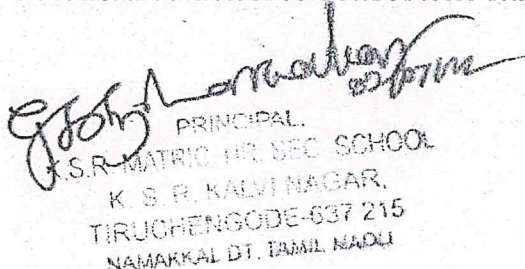 PRINCIPAL.
K.S.R. MATRIC. HR. SEC. SCHOOL
K. S. R. KALVI NAGAR,
TIRUCHENGODE-637 215
NAMAKKAL DT. TAMIL NADU